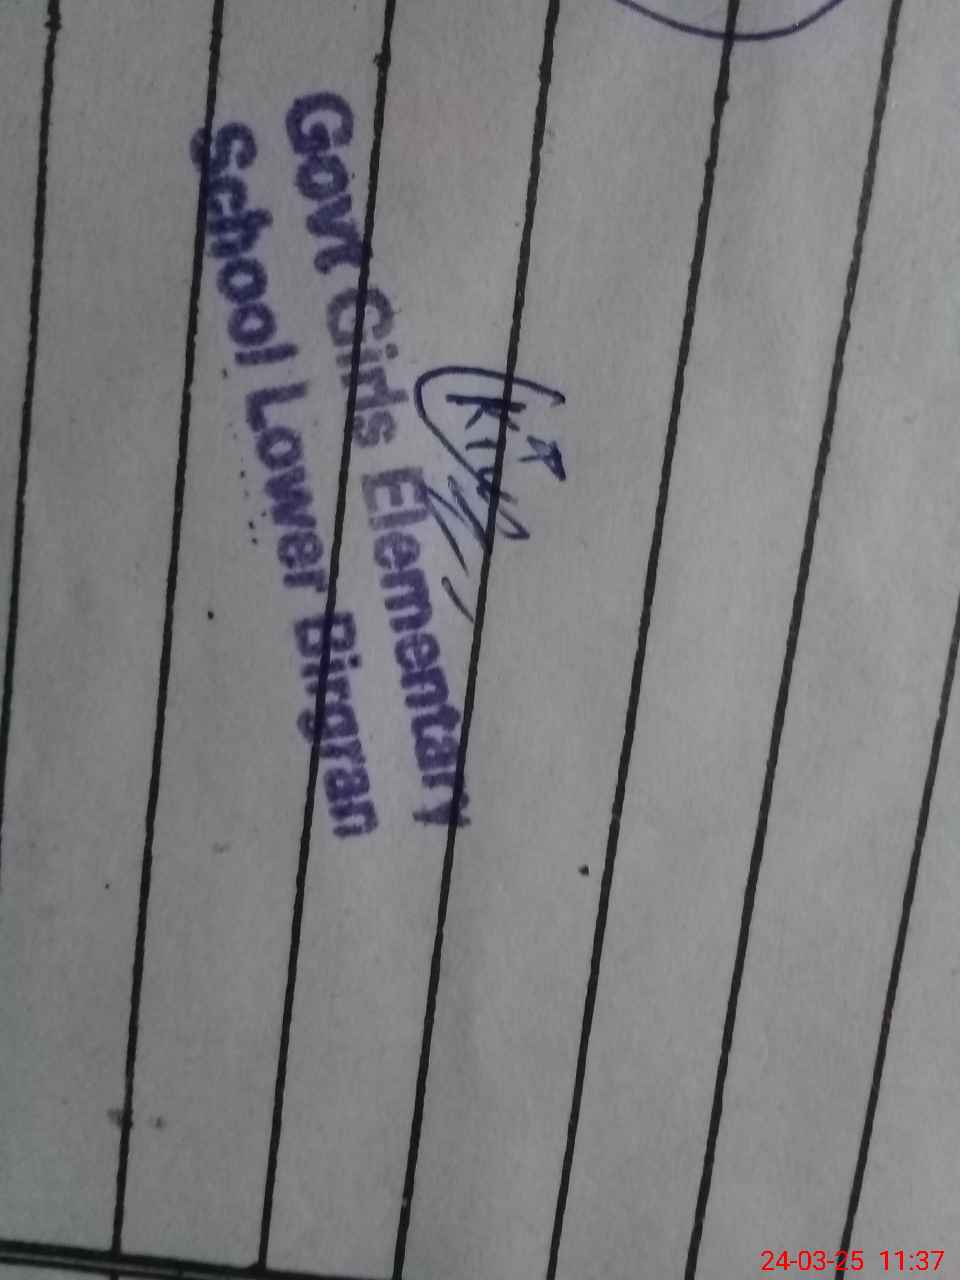 Govt Girls Elementary
School Lower Birgran
24-03-25 11:37